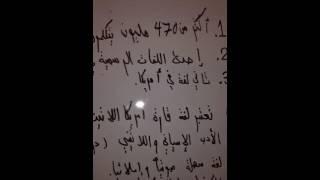 1. أكثر من 470 مليون يتكلمون
2. إحدى اللغات الرسمية
3. ثاني لغة في أمريكا.
تعتبر لغة قارة أمريكا اللاتينية
الأدب الإسباني واللاتيني
لغة سهلة صوتياً وإملائياً.